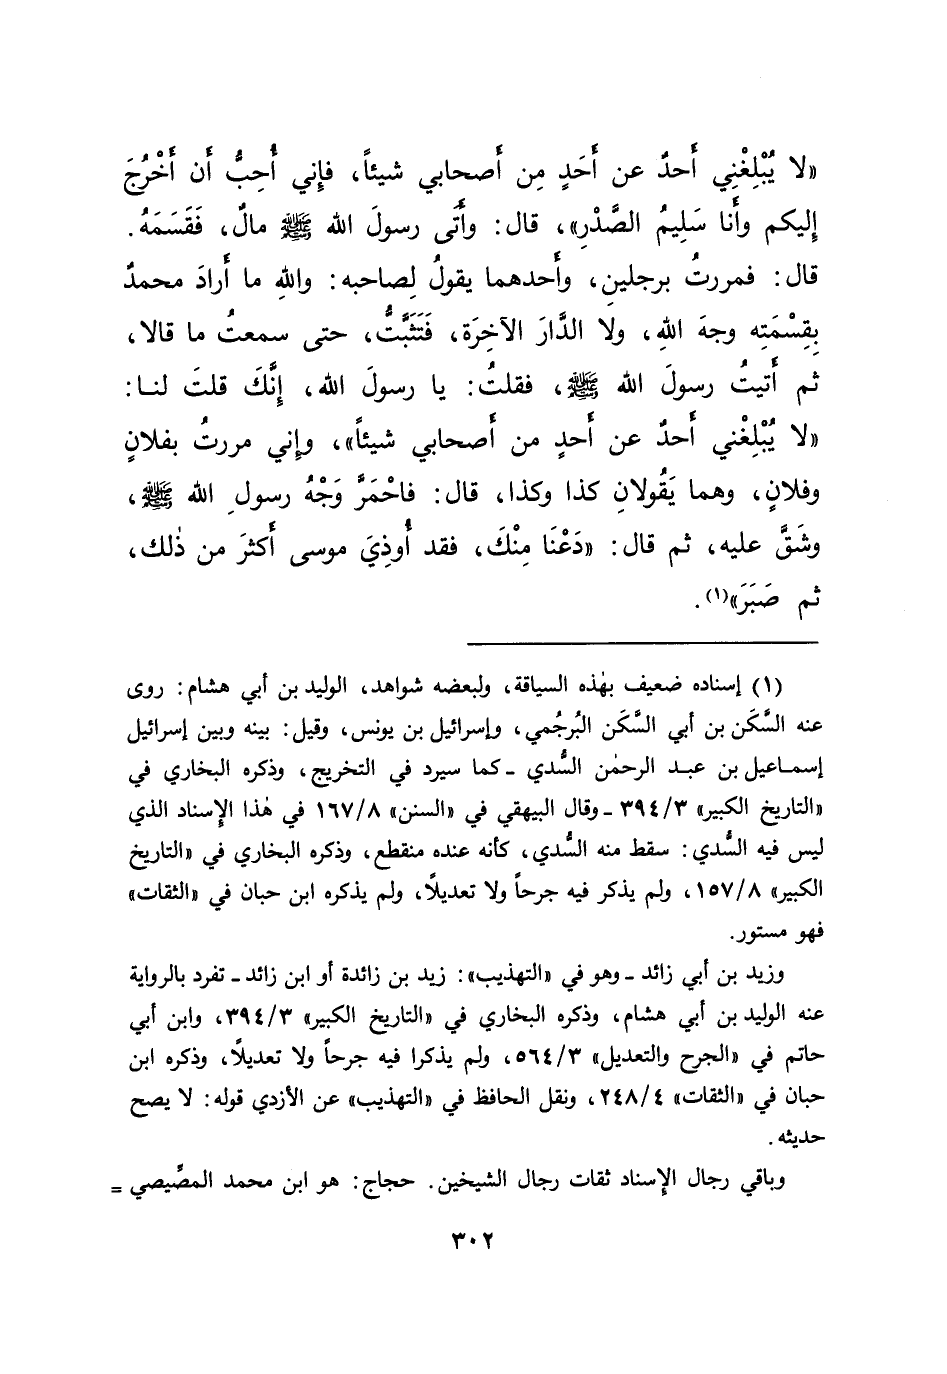 «لا يُبْلِغْنِي أَحدٌ عن أَحَدٍ مِن أَصحابي شيئاً، فإِني أُحِبُّ أَن أَخْرُجَ
إليكم وأَنا سَلِيمُ الصَّدْرِ»، قال: وأَتَى رسولَ الله ﷺ مالٌ، فَقَسَمَهُ.
قال: فمررتُ برجلين، وأَحدهما يقولُ لِصاحبه: واللهِ ما أَرادَ محمدٌ
بِقِسْمَتِه وجهَ اللهِ، ولا الدَّارَ الآخِرَة، فَتَثَبَّتُّ، حتى سمعتُ ما قالا،
ثم أَتيتُ رسولَ الله ﷺ، فقلتُ: يا رسولَ الله، إِنَّكَ قلتَ لنا:
«لا يُبْلِغْني أَحدٌ عن أَحدٍ من أَصحابي شيئاً»، وإِني مررتُ بفلانٍ
وفلانٍ، وهما يَقُولانِ كذا وكذا، قال: فاحْمَرَّ وَجْهُ رسولِ الله ﷺ،
وشَقَّ عليه، ثم قال: «دَعْنَا مِنْكَ، فقد أُوذِيَ موسى أَكثرَ من ذٰلك،
ثم صَبَرَ»(١).
(١) إسناده ضعيف بهٰذه السياقة، ولبعضه شواهد، الوليد بن أبي هشام: روى
عنه السَّكَن بن أبي السَّكَن البُرجُمي، وإسرائيل بن يونس، وقيل: بينه وبين إسرائيل
إسماعيل بن عبد الرحمٰن السُّدي ـ كما سيرد في التخريج، وذكره البخاري في
«التاريخ الكبير» ٣٩٤/٣ ـ وقال البيهقي في «السنن» ١٦٧/٨ في هٰذا الإسناد الذي
ليس فيه السُّدي: سقط منه السُّدي، كأنه عنده منقطع، وذكره البخاري في «التاريخ
الكبير» ١٥٧/٨، ولم يذكر فيه جرحاً ولا تعديلًا، ولم يذكره ابن حبان في «الثقات»
فهو مستور.
وزيد بن أبي زائد ـ وهو في «التهذيب»: زيد بن زائدة أو ابن زائد ـ تفرد بالرواية
عنه الوليد بن أبي هشام، وذكره البخاري في «التاريخ الكبير» ٣٩٤/٣، وابن أبي
حاتم في «الجرح والتعديل» ٥٦٤/٣، ولم يذكرا فيه جرحاً ولا تعديلًا، وذكره ابن
حبان في «الثقات» ٢٤٨/٤، ونقل الحافظ في «التهذيب» عن الأزدي قوله: لا يصح
حديثه.
وباقي رجال الإسناد ثقات رجال الشيخين. حجاج: هو ابن محمد المصِّيصي =
٣٠٢